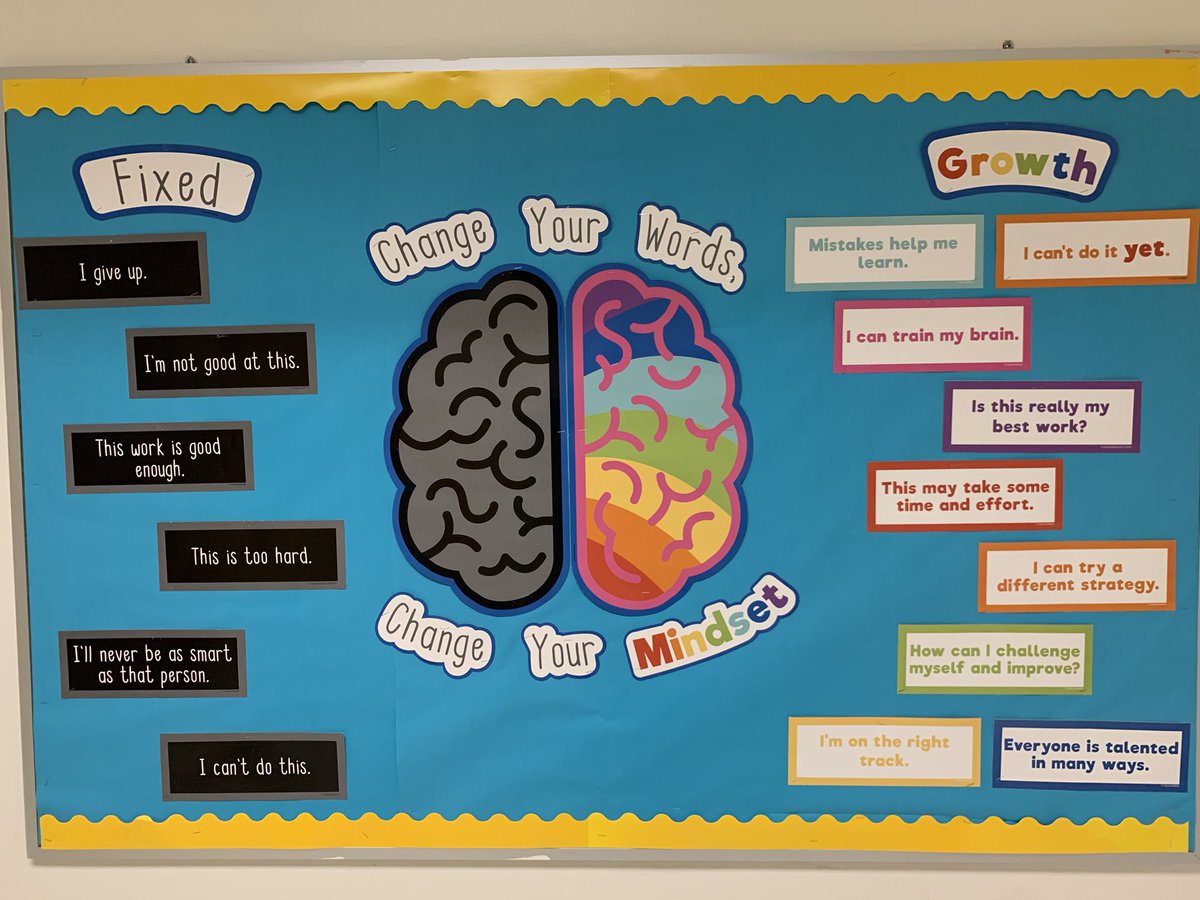 Fixed
I give up.
I'm not good at this.
This work is good
enough.
This is too hard.
I'll never be as smart
as that person.
I can't do this.
Change Your Words,
Change Your Mindset
Growth
Mistakes help me
learn.
I can't do it yet.
I can train my brain.
Is this really my
best work?
This may take some
time and effort.
I can try a
different strategy.
How can I challenge
myself and improve?
I'm on the right
track.
Everyone is talented
in many ways.